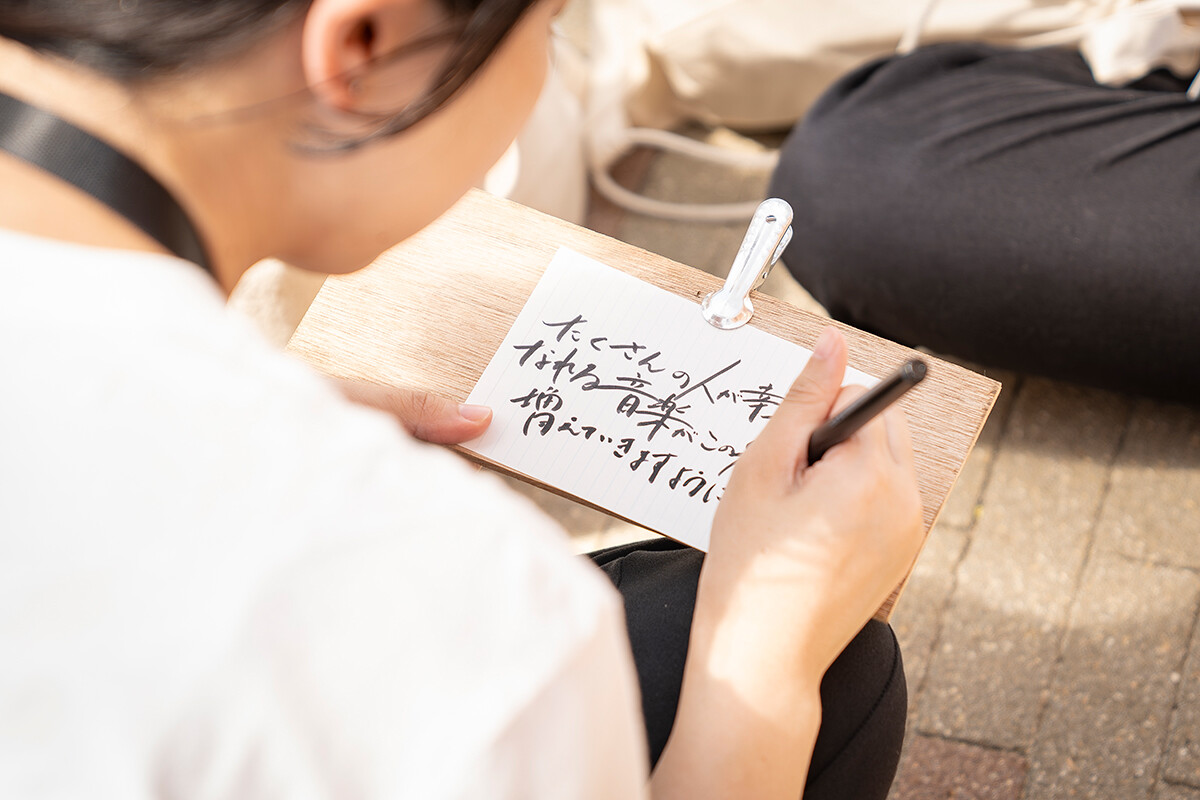 たくさんの人が幸
なれる音楽がこの
増えていきますように